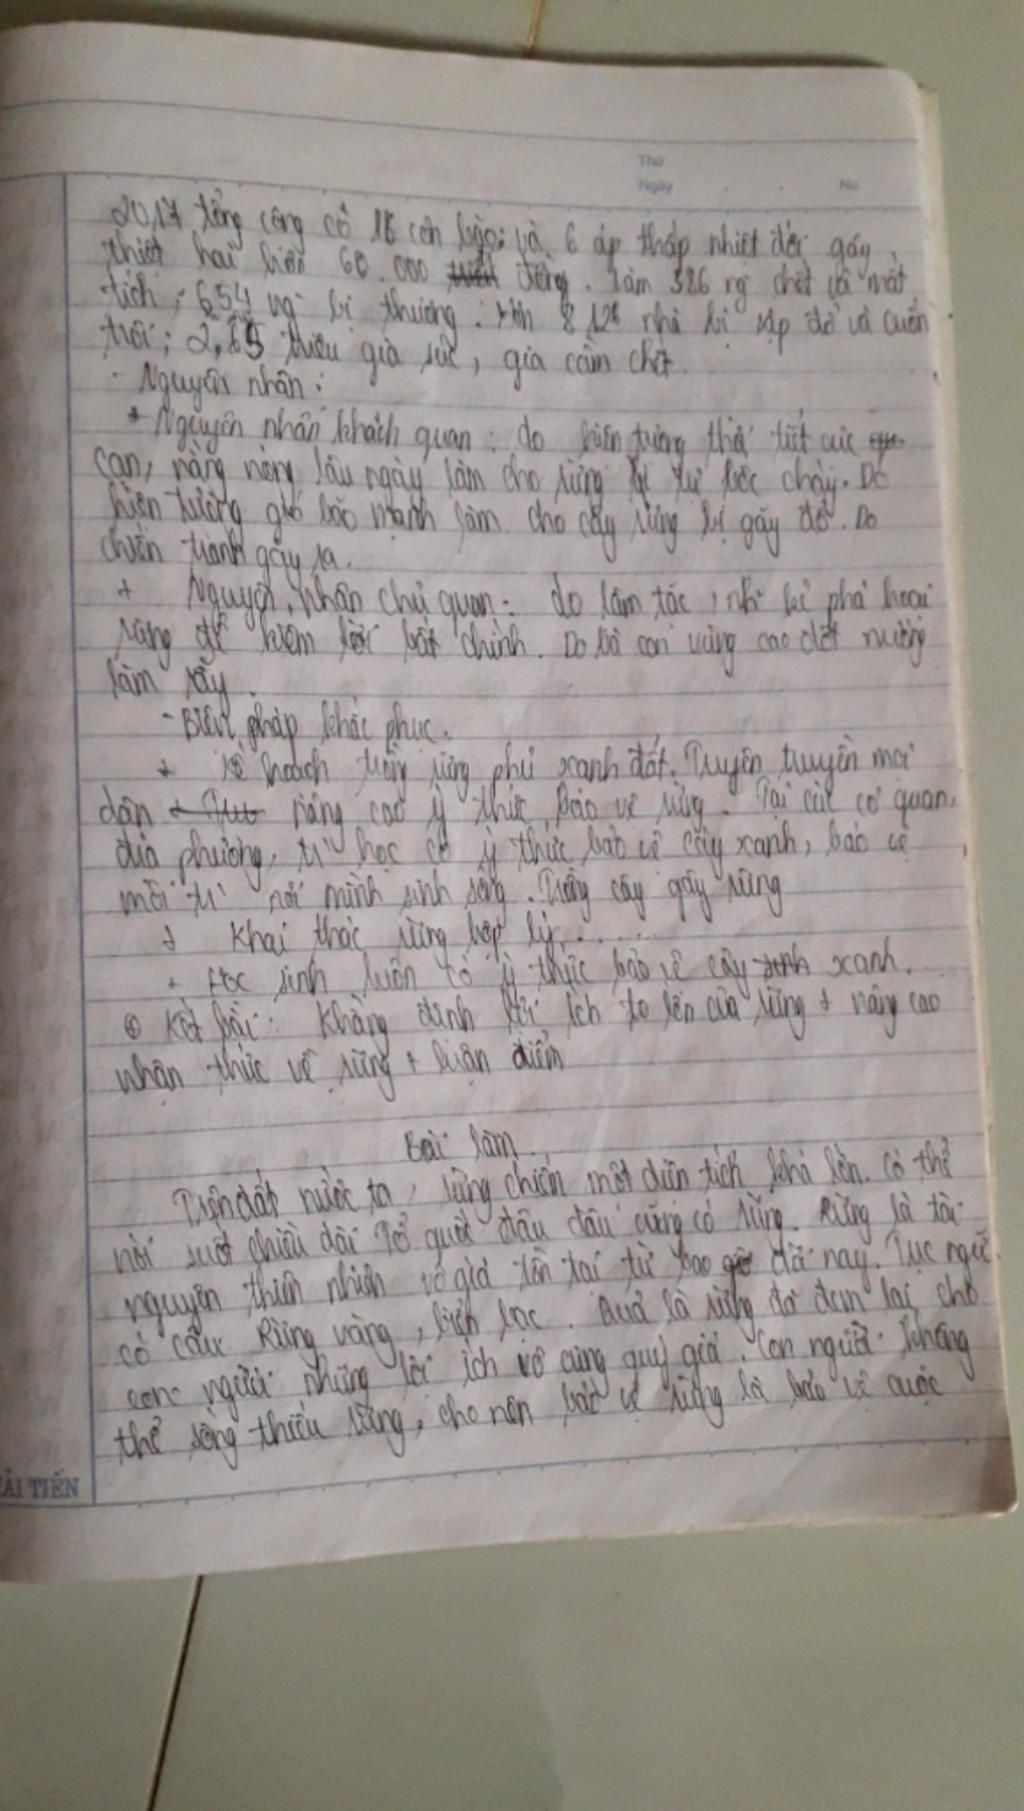 Thứ
Ngày No
2017 tổng cộng có 16 cơn bão và 6 áp thấp nhiệt đới gây
thiệt hại hơn 60.000 đồng. Làm 386 ng chết và mất
tích, 654 ng bị thương. Hơn 8.126 nhà bị sập đổ và cuốn
trôi; 2,65 triệu gia súc, gia cầm chết.
- Nguyên nhân:
+ Nguyên nhân khách quan: do hiện tượng thời tiết cực
cạn, nắng nóng lâu ngày làm cho rừng tự bốc cháy. Do
hiện tượng gió bão mạnh làm cho cây rừng bị gãy đổ. Do
chiến tranh gây ra.
+ Nguyên nhân chủ quan: do lâm tặc, kẻ phá hoại
rừng để kiếm lời bất chính. Do bà con vùng cao đốt nương
làm rẫy.
- Biện pháp khắc phục.
+ Kế hoạch trồng rừng phủ xanh đất. Tuyên truyền mọi
dân nâng cao ý thức bảo vệ rừng. Tại các cơ quan,
địa phương, tr học có ý thức bảo vệ cây xanh, bảo vệ
môi tr nơi mình sinh sống. Trồng cây gây rừng
+ Khai thác rừng hợp lý......
+ Học sinh luôn có ý thức bảo vệ cây xanh.
⊕ Kết bài: Khẳng định lợi ích to lớn của rừng + nâng cao
nhận thức về rừng + luận điểm
Bài làm
Trên đất nước ta, rừng chiếm một diện tích khá lớn. Có thể
nói suốt chiều dài Tổ quốc đâu đâu cũng có rừng. Rừng là tài
nguyên thiên nhiên vô giá tồn tại từ bao đời nay. Tục ngữ
có câu Rừng vàng, biển bạc. Quả là rừng đã đem lại cho
con người những lợi ích vô cùng quý giá. Con người không
thể sống thiếu rừng, cho nên bảo vệ rừng là bảo vệ cuộc
ẢI TIẾN